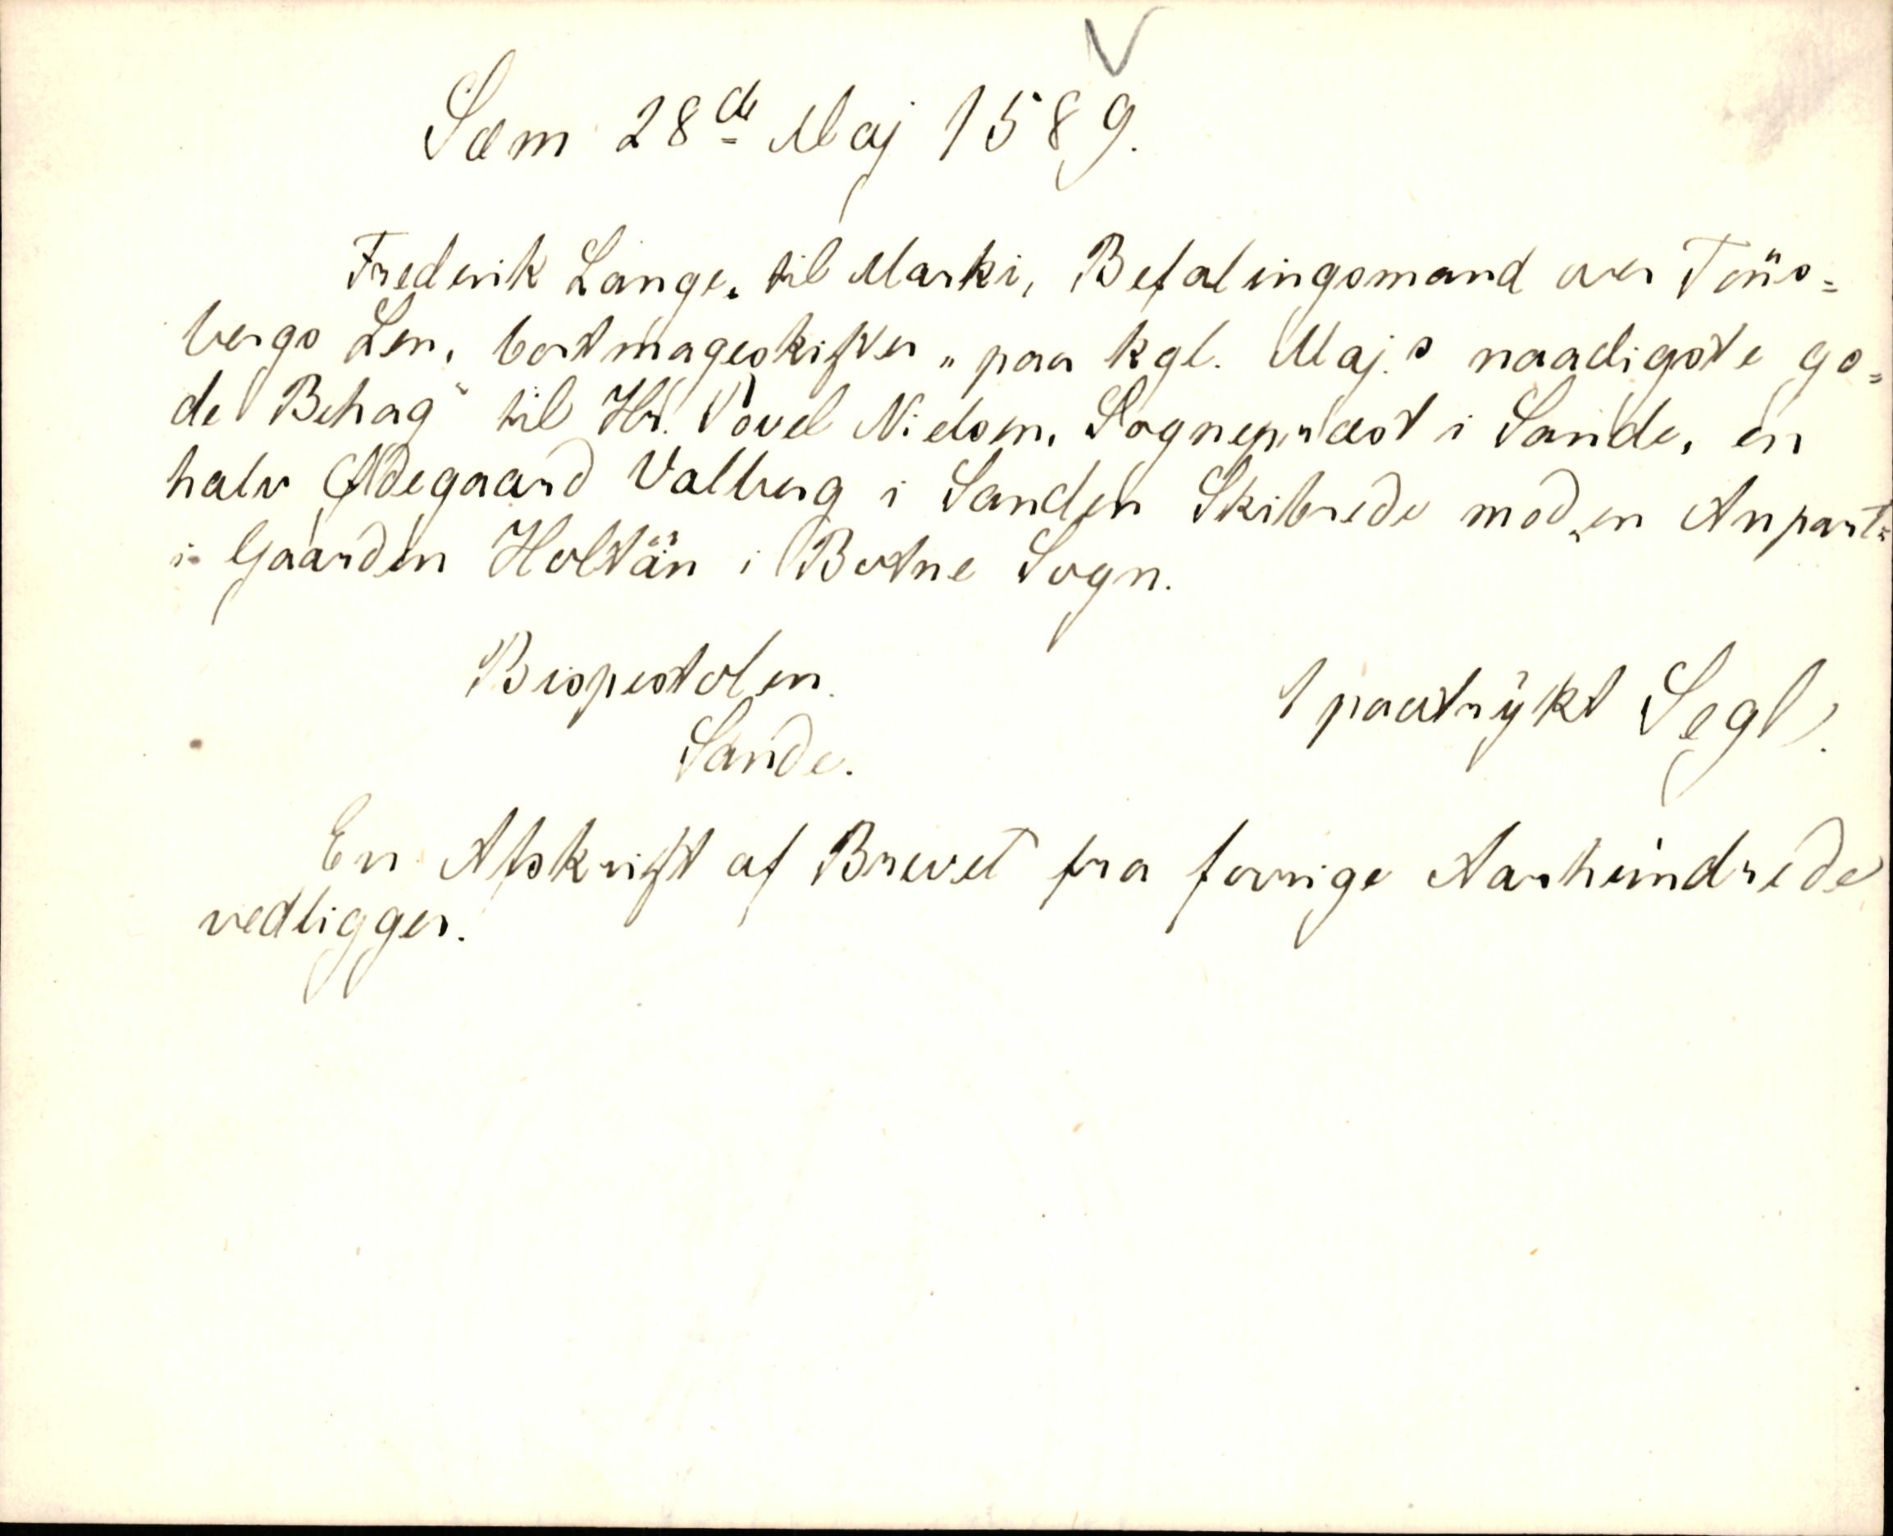 Sæm 28de Maj 1589.
Frederik Lange, til Marki, Befalingsmand over Tøns=
bergs Len, bortmageskifter „paa kgl. Maj.s naadigste go=
de Behag" til Hr. Povel Nielsen, Sognepræst i Sande, en
halv Ødegaard Valberg i Sanden Skibrede mod en Anpart
i Gaarden Holtan i Botne Sogn.
Bispestolen.
1 paatrykt Segl.
Sande.
En Afskrift af Brevet fra forrige Aarhundrede
vedligger.